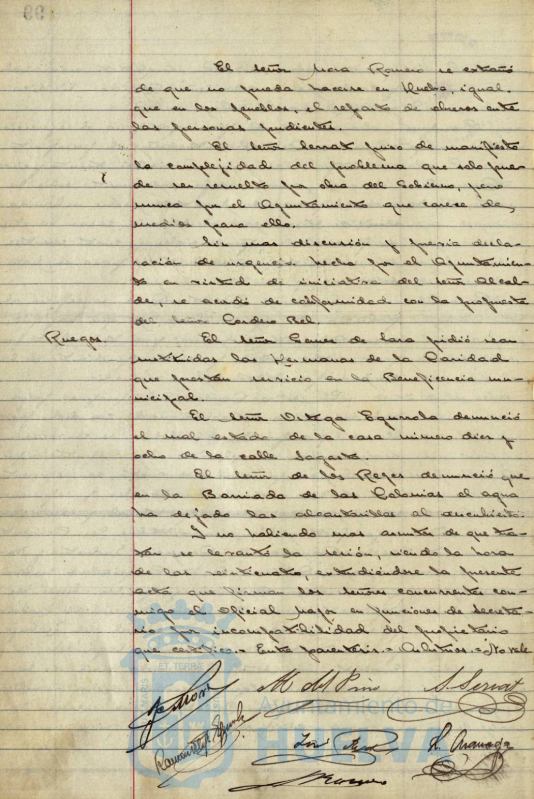 El señor Mora Romero se extrañó
de que no pueda hacerse en Huelva, igual
que en los pueblos, el reparto de obreros entre
las personas pudientes.
El señor Serrat puso de manifiesto
la complejidad del problema que solo pue-
de ser resuelto por obra del Gobierno, pero
nunca por el Ayuntamiento que carece de
medios para ello.
Sin mas discusión y previa decla-
ración de urgencia hecha por el Ayuntamien-
to en virtud de iniciativa del señor Alcal-
de, se acordó de conformidad con la propuesta
del señor Cordero Bel.
Ruegos.
El señor Gomez de Lara pidió sean
sustituidas las Hermanas de la Caridad
que prestan servicio en la Beneficencia mu-
nicipal.
El señor Ortega Egurrola denunció
el mal estado de la casa número diez y
ocho de la calle Sagasta.
El señor de los Reyes denunció que
en la Barriada de las Colonias el agua
ha dejado las alcantarillas al descubierto.
Y no habiendo mas asuntos de que tra-
tar se levantó la sesión, siendo la hora
de las veinticuatro, extendiéndose la presente
acta que firman los señores concurrentes con-
migo el Oficial mayor en funciones de secreta-
rio por incompatibilidad del propietario
que certifico.= Entre parentesis.= Arbitrios.= No vale
M del Pino
S. Serrat
Ayuntamiento de
HUELVA